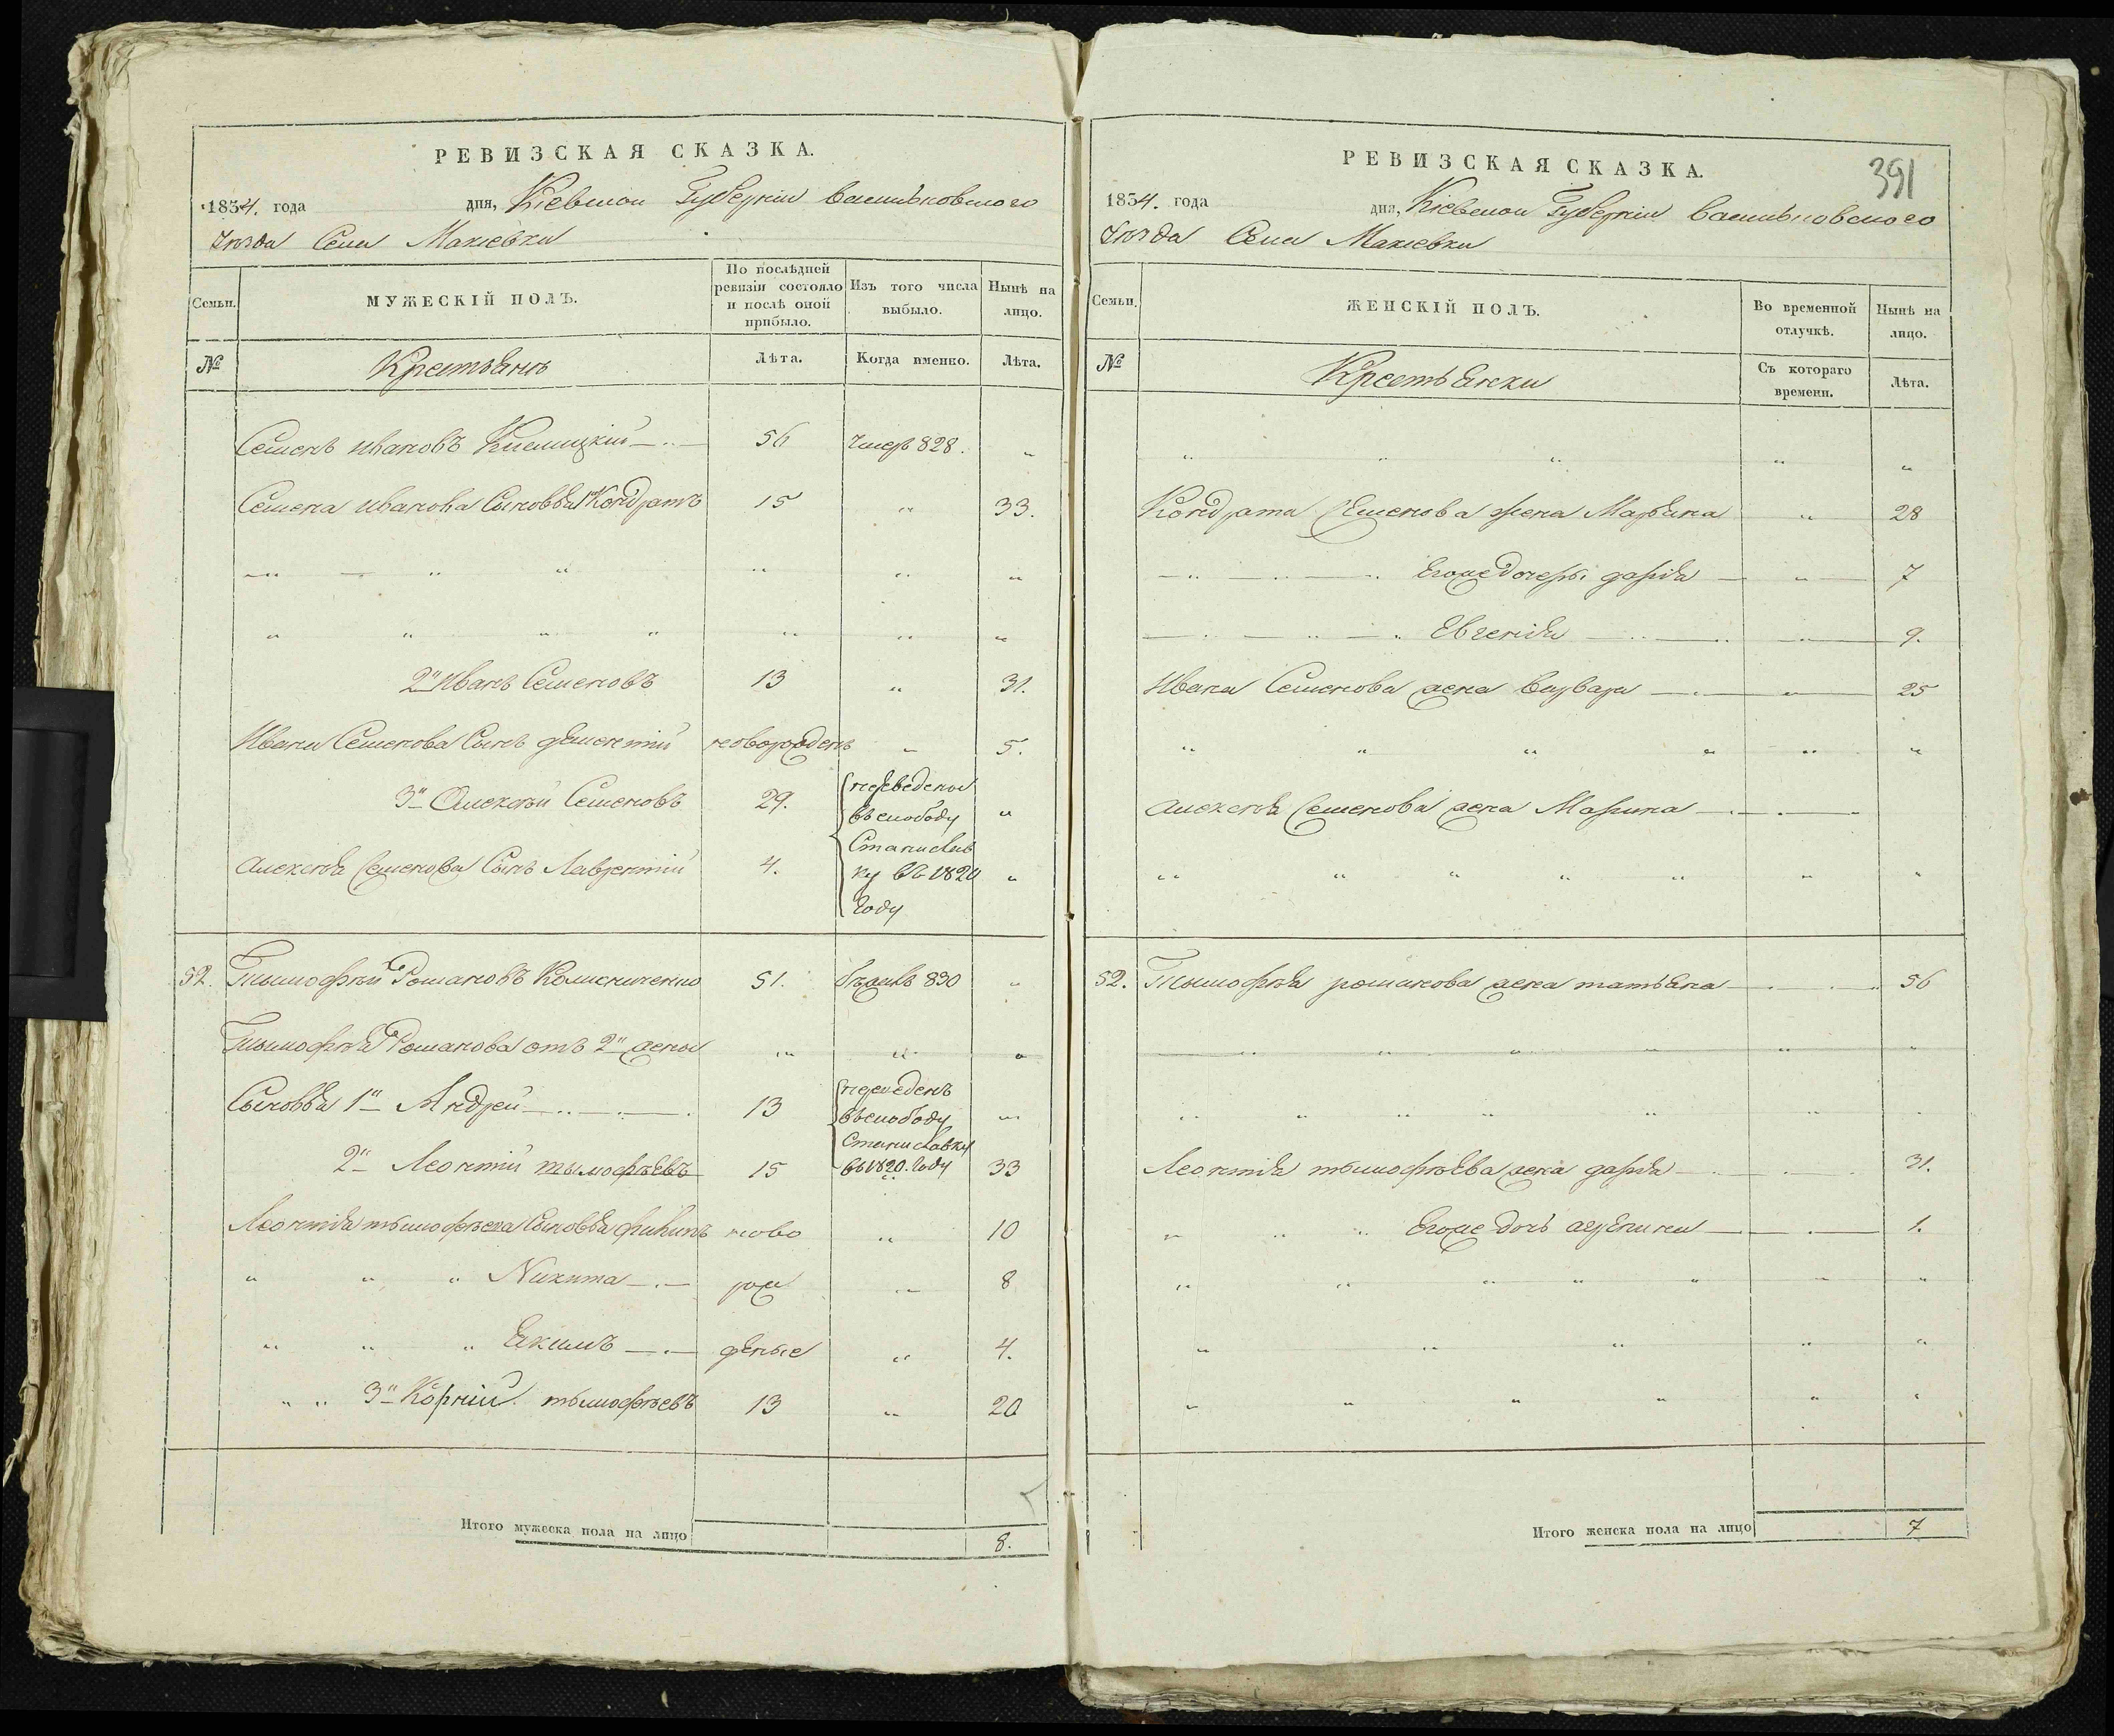 РЕВИЗСКАЯ СКАЗКА.
1834. года дня, Кіевской Губерніи Васильковского
Уѣзда Села Макіевки
Семьи.
МУЖЕСКІЙ ПОЛЪ.
По послѣдней ревизіи состояло и послѣ оной прибыло.
Изъ того числа выбыло.
Нынѣ на лицо.
№
Крестьянъ
Лѣта.
Когда именно.
Лѣта.
Семенъ Ивановъ 56 Умеръ 828. "
Семена Иванова Сыновья 1й Кондратъ 15 " 33.
2й Иванъ Семеновъ 13 " 31.
Ивана Семенова Сынъ Дементій новорожденъ " 5.
3й Алексѣй Семеновъ 29. переведены "
въ слободу
Станислав
Алексѣя Семенова Сынъ Лаврентій 4. ку въ 1820 "
году
52. Тымофѣй Романовъ Колисниченко 51. 830 "
Тымофѣя Романова отъ 2й жены " " "
Сыновья 1й Андрей 13 переведенъ "
въ слободу
Станиславку
2й Леонтій тымофѣевъ 15 въ 1820. году 33
Леонтія тымофѣева Сыновья Филипъ ново " 10
" " " Никита рож " 8
" " " Якимъ деные " 4.
" " 3й Корній тымофѣевъ 13 " 20
Итого мужеска пола на лицо 8.
РЕВИЗСКАЯ СКАЗКА.
391
1834. года дня, Кіевской Губерніи Васильковского
Уѣзда Села Макіевки
Семьи.
ЖЕНСКІЙ ПОЛЪ.
Во временной отлучкѣ.
Нынѣ на лицо.
№
Крестьянки
Съ котораго времени.
Лѣта.
Кондрата Семенова жена Марьяна " 28
Егоже дочеры дарія " 7
Евгенія " 9.
Ивана Семенова жена Варвара " 25
Алексѣя Семенова жена Марина
52. Тымофѣя романова жена татьяна 56
Леонтія тымофѣева жена дарія 31.
Егоже дочь 1.
Итого женска пола на лицо 7